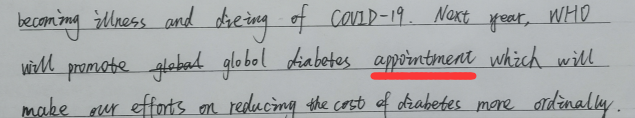 becoming illness and dieing of COVID-19. Next year, WHO
will promote global global diabetes appointment which will
make our efforts on reducing the cost of diabetes more ordinally.